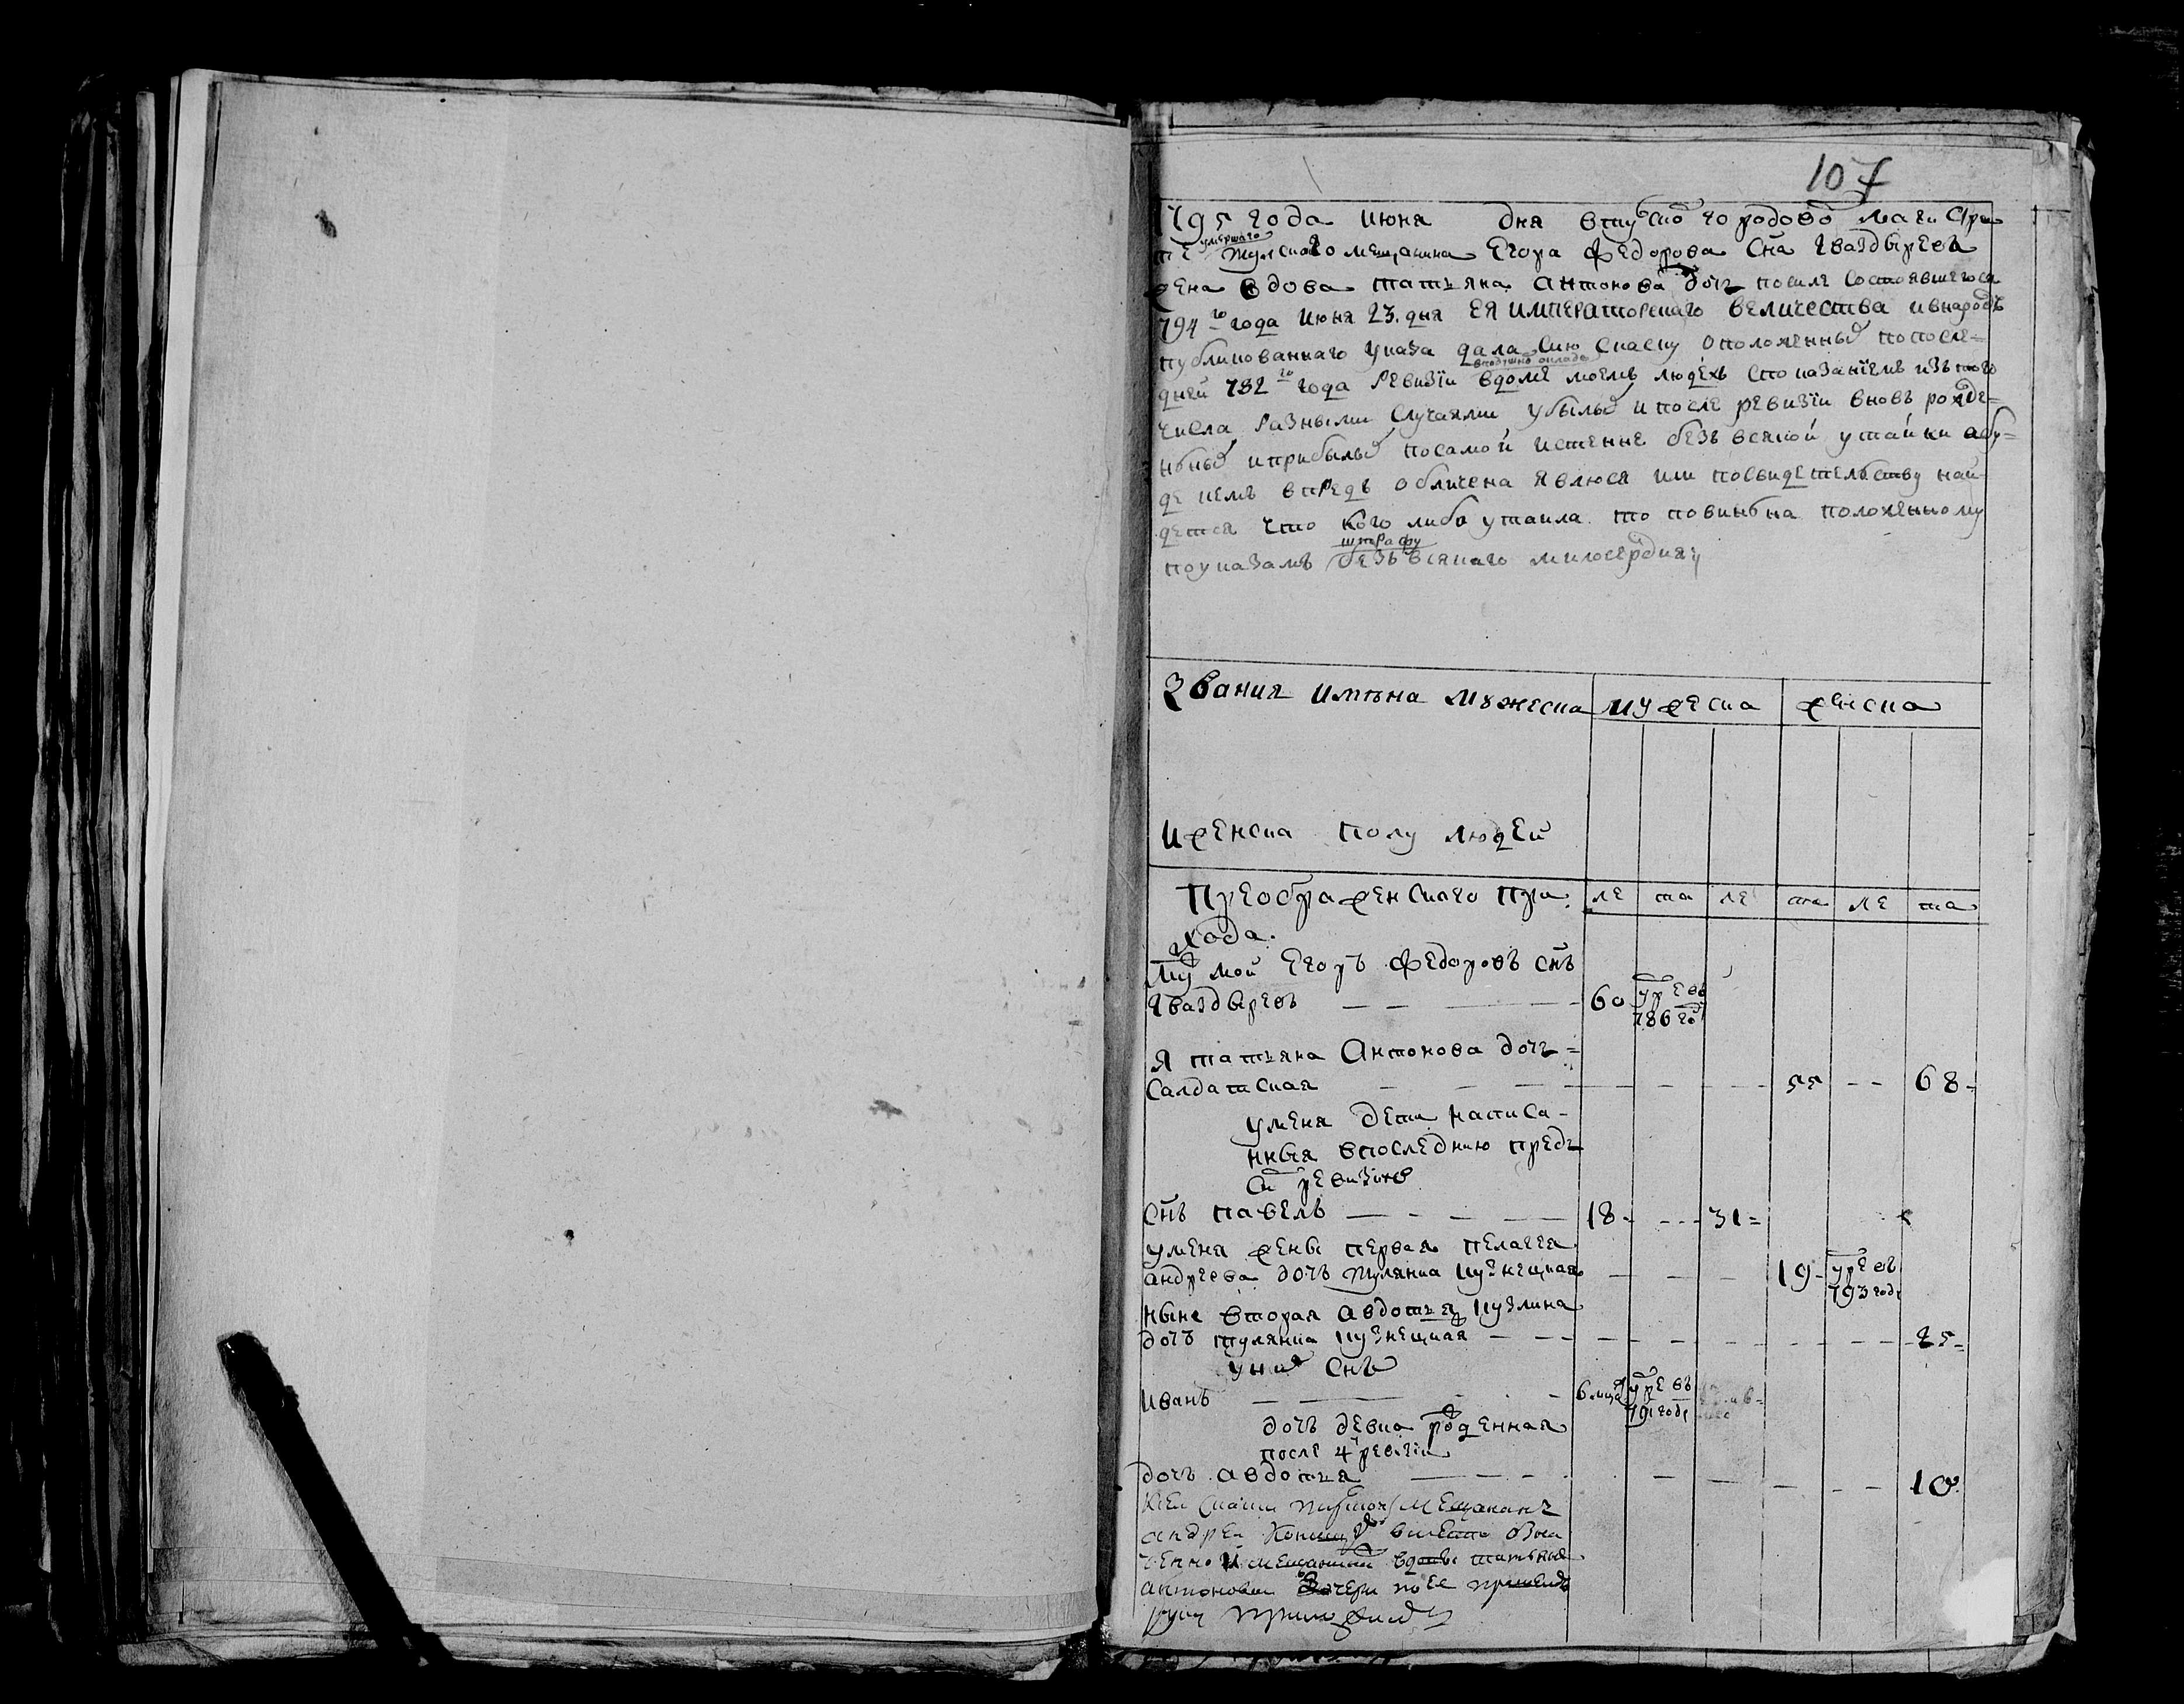 107
1795 года июня дня втулско городово маги Стра
те умершаго тулского мещанина Егора Федорова Сна Гваздырева
жена вдова татьяна антонова дочь посиле Состоявшегося
794 го года июня 23. дня ЕЯ ИМПЕРАТОРСКАГО ВЕЛИЧЕСТВА ивнародъ
публикованнаго указа дала Сию Скаску оположенных попосле=
дней 782 го года Ревизїи вподушно окладѣ вдоме моемъ людехъ Споказанїемъ изътого
числа Разными Случаями убылых ипосле ревизїи вновь рожде=
нных иприбылых посамой истенне безъ всякой утайки абу=
де чемъ впредь обличена явлюся или посвидетелству най
дется что кого либо утаила то повинна положенному
штрафу
поуказамъ безъ всякаго милосердия
Звания имѣна мужеска мужеска женска
иженска полу людей
Преображенского При ле та ле та ле та
хода.
Му мой Егоръ Федоровъ снъ
Гваздыревъ 60 умре въ 786 го
я татьяна Антонова дочь=
Салдатская 55 68
умена дети написа-
нныя впоследнию предъ
Си ревизию
Снъ павелъ 18 31
умена жены первая пелагея
андреева дочь тулянка кузнецкая 19 умре въ 793 годе
ныне вторая авдотья кузмина
дочь тулянка кузнецкая 25
уних Снъ
иванъ 6 мцо умре въ 791 годе
дочь девка рожденная
после 4 ревизии
дочь авдотья 10
Ксеи Скаски мещанинъ
андреи вместо Озна
ченной мещанкои вдовы татьяны
антоновои дочери по ее прошению
руку приложилъ